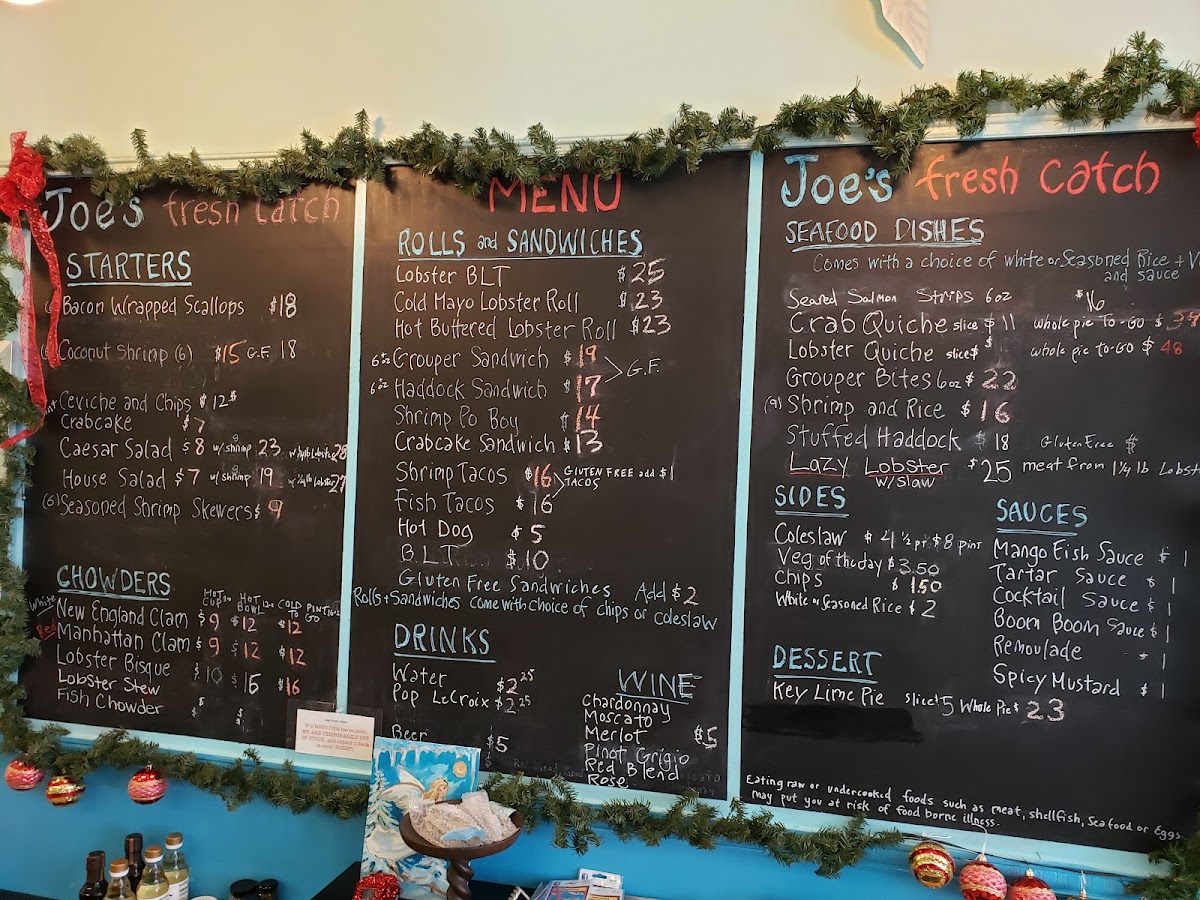 Joe's fresh catch
STARTERS
Bacon Wrapped Scallops $18
Coconut Shrimp (6) $15 G.F. 18
Ceviche and Chips $12
Crabcake $7
Caesar Salad $8 w/shrimp 23 28
House Salad $7 w/shrimp 19 27
(6) Seasoned Shrimp Skewers $9
CHOWDERS
HOT CUP HOT BOWL COLD PINT TO GO
White New England Clam $9 $12 $12
Red Manhattan Clam $9 $12 $12
Lobster Bisque $10 $16 $16
Lobster Stew
Fish Chowder $ $
MENU
ROLLS and SANDWICHES
Lobster BLT $25
Cold Mayo Lobster Roll $23
Hot Buttered Lobster Roll $23
6oz Grouper Sandwich $19
G.F.
6oz Haddock Sandwich $17
Shrimp Po Boy $14
Crabcake Sandwich $13
Shrimp Tacos $16 GLUTEN FREE add $1
TACOS
Fish Tacos $16
Hot Dog $5
BLT $10
Gluten Free Sandwiches Add $2
Rolls + Sandwiches come with choice of chips or coleslaw
DRINKS
Water $2 25
Pop LeCroix $2 25
Beer $5
WINE
Chardonnay
Moscato
Merlot $5
Pinot Grigio
Red Blend
Rose
Joe's fresh catch
SEAFOOD DISHES
Comes with a choice of white or Seasoned Rice + V
and sauce
Seared Salmon Strips 6oz $16
Crab Quiche slice $11 whole pie To-Go $
Lobster Quiche slice $ whole pie to-GO $48
Grouper Bites 6oz $22
(9) Shrimp and Rice $16
Stuffed Haddock $18 Gluten Free $
Lazy Lobster $25 meat from 1¼ lb Lobst
w/slaw
SIDES
Coleslaw $4 ½ pt $8 pint
Veg of the day $3.50
Chips $1.50
White or Seasoned Rice $2
SAUCES
Mango Fish Sauce $1
Tartar Sauce $1
Cocktail Sauce $1
Boom Boom Sauce $1
Remoulade $1
Spicy Mustard $1
DESSERT
Key Lime Pie slice $5 Whole Pie $23
Eating raw or undercooked foods such as meat, shellfish, Seafood or Eggs
may put you at risk of food borne illness.